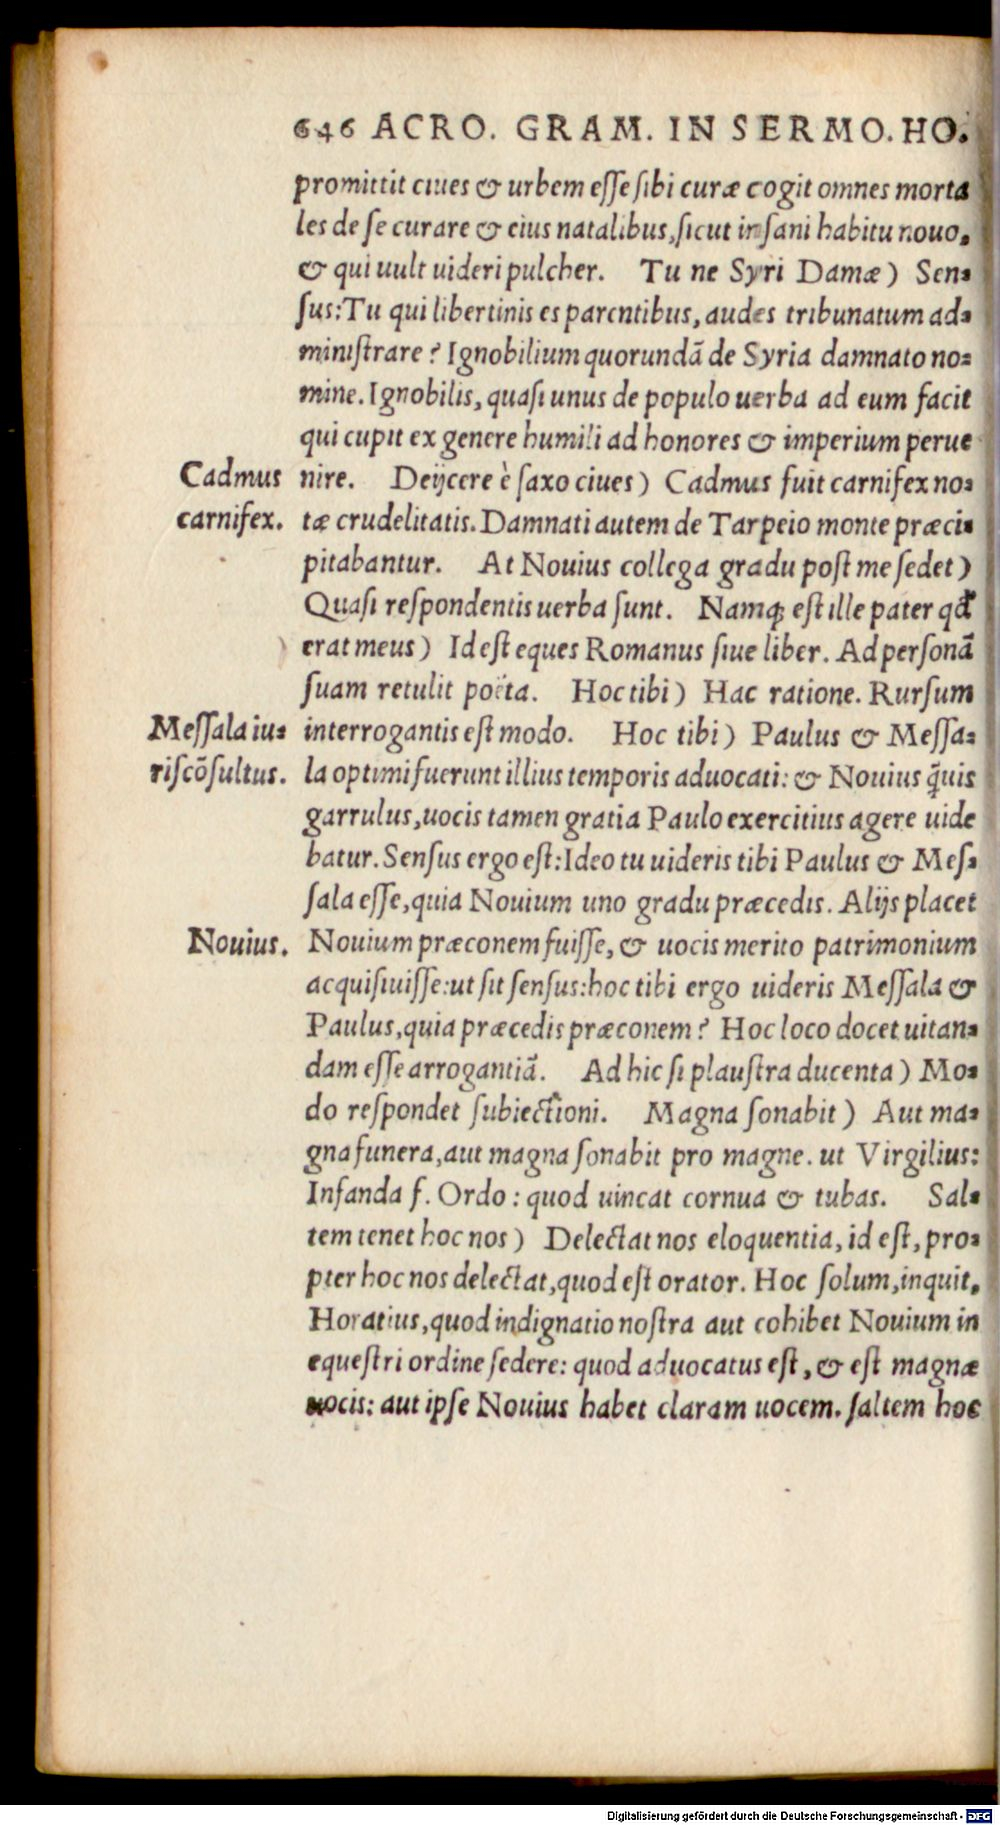 646 ACRO. GRAM. IN SERMO. HO.
promittit ciues & urbem esse sibi curæ cogit omnes morta
les de se curare & eius natalibus, sicut insani habitu nouo,
& qui uult uideri pulcher. Tu ne Syri Damæ) Sen-
sus: Tu qui libertinis es parentibus, audes tribunatum ad-
ministrare? Ignobilium quorundā de Syria damnato no-
mine. Ignobilis, quasi unus de populo uerba ad eum facit
qui cupit ex genere humili ad honores & imperium perue
Cadmus nire. Deijcere è saxo ciues) Cadmus fuit carnifex no-
carnifex. tæ crudelitatis. Damnati autem de Tarpeio monte præci-
pitabantur. At Nouius collega gradu post me sedet)
Quasi respondentis uerba sunt. Namq; est ille pater qđ
erat meus) Id est eques Romanus siue liber. Ad personā
suam retulit poëta. Hoc tibi) Hac ratione. Rursum
Messala iu- interrogantis est modo. Hoc tibi) Paulus & Messa-
riscōsultus. la optimi fuerunt illius temporis aduocati: & Nouius q̃uis
garrulus, uocis tamen gratia Paulo exercitius agere uide
batur. Sensus ergo est: Ideo tu uideris tibi Paulus & Mes-
sala esse, quia Nouium uno gradu præcedis. Alijs placet
Nouius. Nouium præconem fuisse, & uocis merito patrimonium
acquisiuisse: ut sit sensus: hoc tibi ergo uideris Messala &
Paulus, quia præcedis præconem? Hoc loco docet uitan-
dam esse arrogantiā. Ad hic si plaustra ducenta) Mo-
do respondet subiectioni. Magna sonabit) Aut ma-
gna funera, aut magna sonabit pro magne. ut Virgilius:
Infanda f. Ordo: quod uincat cornua & tubas. Sal-
tem tenet hoc nos) Delectat nos eloquentia, id est, pro-
pter hoc nos delectat, quod est orator. Hoc solum, inquit,
Horatius, quod indignatio nostra aut cohibet Nouium in
equestri ordine sedere: quod aduocatus est, & est magnæ
uocis: aut ipse Nouius habet claram uocem. saltem hoc
Digitalisierung gefördert durch die Deutsche Forschungsgemeinschaft - DFG